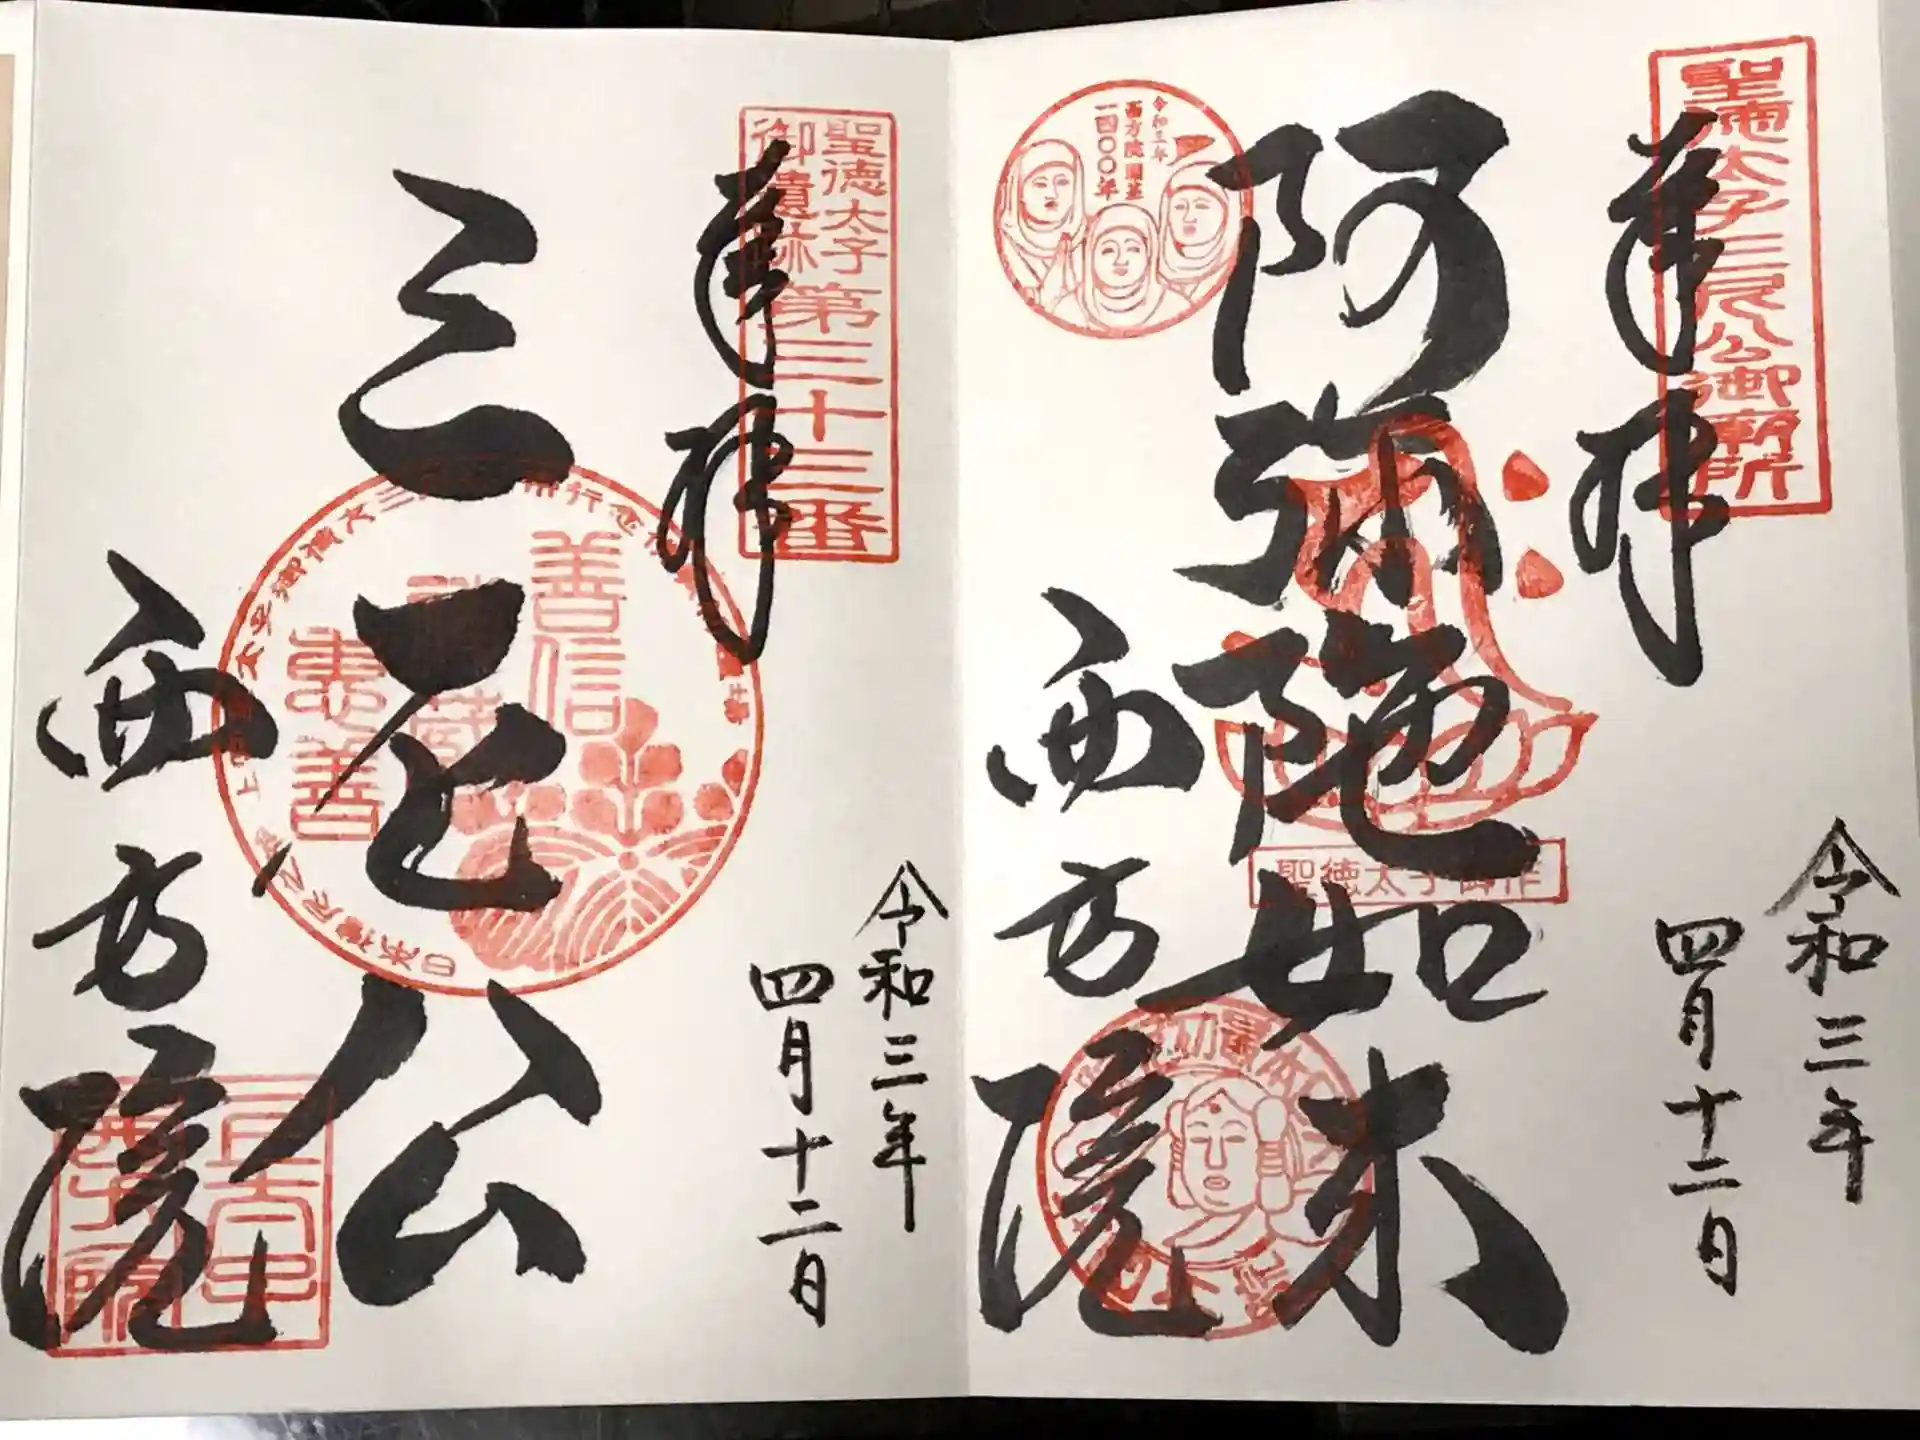 聖徳太子三尼公御廟所
奉拝
令和三年
四月十二日
令和三年
西方院開基
一四〇〇年
阿弥陀如来
聖徳太子御作
西方院
聖徳太子
御遺跡
第三十三番
奉拝
令和三年
四月十二日
三尼公
善信
禅蔵
恵善
西方院